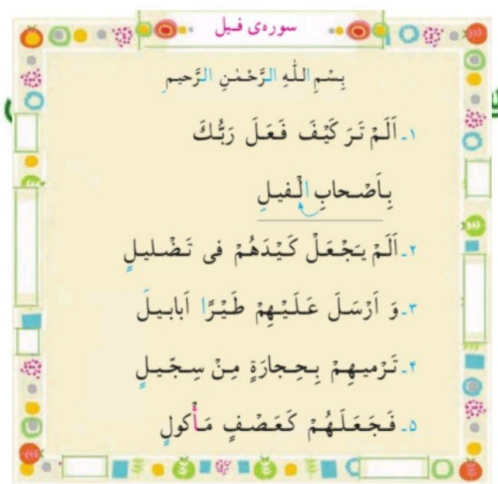 سوره‌ی فیل
بِسْمِ اللّٰهِ الرَّحْمٰنِ الرَّحیمِ
۱ـ اَلَمْ تَرَ کَیْفَ فَعَلَ رَبُّكَ
بِاَصْحابِ الْفیلِ
۲ـ اَلَمْ یَجْعَلْ کَیْدَهُمْ فی تَضْلیلٍ
۳ـ وَ اَرْسَلَ عَلَیْهِمْ طَیْرًا اَبابیلَ
۴ـ تَرْمیهِمْ بِحِجارَةٍ مِنْ سِجّیلٍ
۵ـ فَجَعَلَهُمْ کَعَصْفٍ مَأْکولٍ